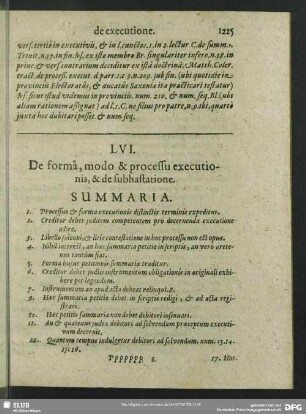 de executione. 1225
vers. tertiò in executivis, & in l. cunctos. 1. in 2. lectur C. de summ.
Trinit. n. 37. in fin.
ex ista membro Br. singulariter infero. n. 38. in
princ. & vers. contrarium deciditur ex ista doctrinâ: Matth. Coler.
tract. de process. execut. d. part. 1. c. 3. n. 209. sub fin. (ubi quotidie in
provinciis Electoratûs, & ducatûs Saxoniæ ita practicari testatur)
sicut istud videmus in provinciis. num. 210. & num. seq. (ubi
aliam rationem assignat) ad l. 1. C. ne filius pro patre, n. 9. ibi, quartò
juxta hoc dubitari posset. & num. seq.
LVI.
De formâ, modo & processu executio-
nis, & de subhastatione.
SUMMARIA.
1. Processus & forma executionis distinctis terminis expeditur.
2. Creditor debet judicem competentem pro decernenda executione
adire.
3. Libello solenni, & litis contestatione in hoc processu non est opus.
4. Nihil interest, an hæc summaria petitio in scriptis, an verò oretenus
tantùm fiat.
5. Forma hujus petitionis summariæ traditur.
6. Creditor debet judici instrumentum obligationis in originali exhibere
perlegendum.
7. Instrumentum an apud acta debeat relinqui. 8.
9. Hæc summaria petitio debet in scriptis redigi, & ad acta registrari.
10. Hæc petitio summaria non debet debitori insinuari.
11. An & quatenus judex debitori ad solvendum præceptum executivum
decernit.
12. Quantum tempus indulgetur debitori ad solvendum. num. 13. 14.
15. 16.
Ppppppp 5 17. Hoc
SLUB